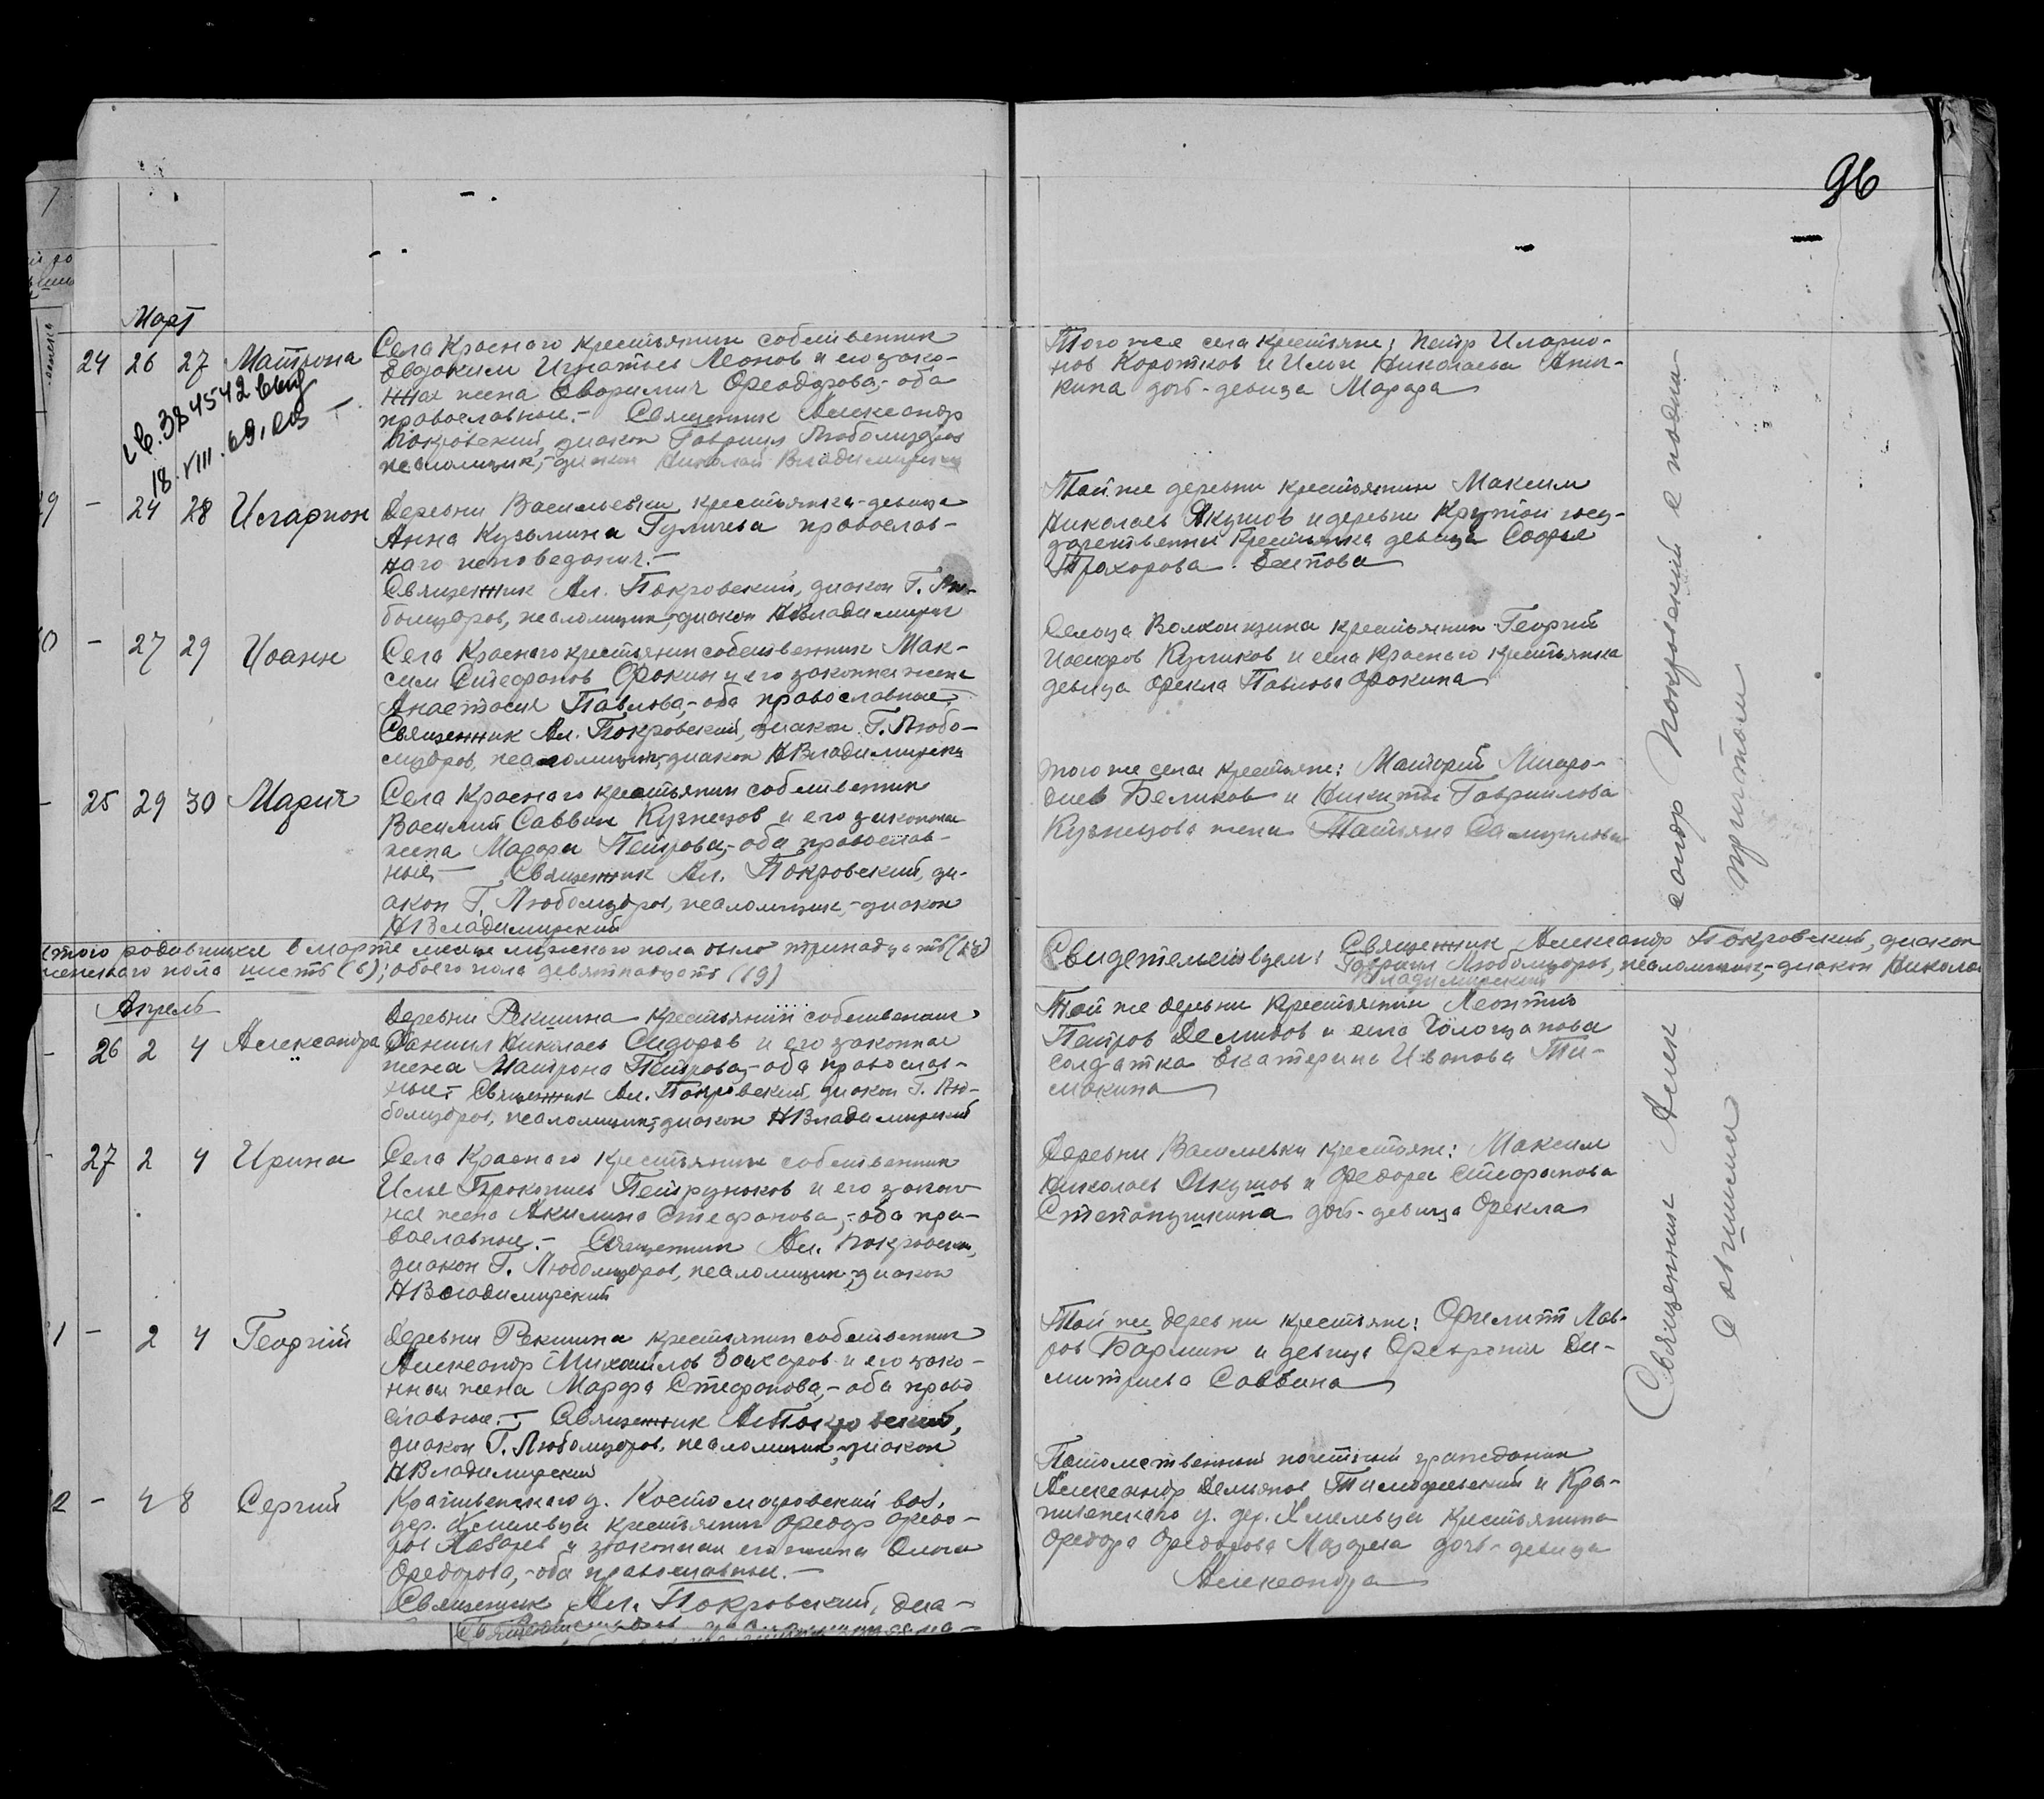 96
Март
24 26 27 Матрона
Села Краснаго крестьянин собственник
Евдоким Игнатьев Леонов и его зако-
нная жена Ефимия Феодорова,- оба
православные.- Священник Александр
Покровский, диакон Гавриил Любомудров
псаломщик,- диакон Николай Владимирский
Того же села крестьяне: Петр Иларио-
нов Коротков и Ильи Николаева Аники-
кина дочь-девица Марфа
св. 384542 выд
18.VIII.69.
29 - 24 28 Иларион
Деревни Васильевки крестьянка-девица
Анна Кузьмина Гуличева православ-
наго исповедания.-
Священник Ал. Покровский, диакон Г. Лю-
бомудров, псаломщик,-диакон Н Владимирский
Той же деревни крестьянин Максим
Николаев Якушов и деревни Крутой госу-
дарственная крестьянка девица Софья
Прохорова
30 - 27 29 Иоанн
Села Краснаго крестьянин собственник Мак-
сим Стефанов Фокин и его законная жена
Анастасия Павлова,- оба православные.
Священник Ал. Покровский, диакон Г. Любо-
мудров, псаломщик,-диакон Н Владимирский
Сельца Волконщина крестьянин Георгий
Иосифов Куликов и села Краснаго крестьянка
девица Фекла Павлова Фокина
- 25 29 30 Мария
Села Краснаго крестьянин собственник
Василий Саввин Кузнецов и его законная
жена Марфа Петрова,- оба православ-
ные.- Священник Ал. Покровский, ди-
акон Г. Любомудров, псаломщик,-диакон
Н Владимирский
того же села крестьяне: Матфей
Беликов и Никиты Гавриилова
Кузнецова жена Татьяна Самуилова
Итого родившихся в марте месяце мужеского пола было тринадцать (13)
женскаго пола шесть (6); обоего пола девятнадцать (19)
Свидетельствуем: Священник Александр Покровский, диакон
Гавриил Любомудров, псаломщик,-диакон Николай
Владимирский
Апрель
- 26 2 4 Александра
Деревни Рекшина крестьянин собственник
Даниил Николаев Сидоров и его законная
жена Матрона Петрова,- оба православ-
ные.- Священник Ал. Покровский, диакон Г. Лю-
бомудров, псаломщик,-диакон Н Владимирский
Той же деревни крестьянин Леонтий
Петров Демидов и села Голощапова
солдатка Екатерина Иванова Ти-
макина
- 27 2 4 Ирина
Села Краснаго крестьянин собственник
Илья Прокопиев Петрунюков и его закон-
ная жена Акилина Стефанова,- оба пра-
вославные.- Священник Ал. Покровский,
диакон Г. Любомудров, псаломщик,-диакон
Н Владимирский
Деревни Васильевки крестьяне: Максим
Николаев Якушов и Феодора Стефанова
Степанушкина дочь-девица Фекла
31 - 2 4 Георгий
Деревни Рекшина крестьянин собственник
Александр Михаилов Захаров и его зако-
нная жена Марфа Стефанова,- оба право
славные.- Священник Ал Покровский,
диакон Г. Любомудров, псаломщик,-диакон
Н Владимирский
Той же деревни крестьяне: Филипп Лав-
ров Бармин и девица Феврония Ди-
митриева Саввина
32 - 4 8 Сергий
Крапивенскаго у. Костомаровской вол.
дер. Хмелевца крестьянин Феодор Феодо-
ров Лазарев и законная его жена Ольга
Феодорова,- оба православные.-
Священник Ал. Покровский, диа-
Потомственный почетный гражданин
Александр Демьянов Тимофеевский и Кра-
пивенскаго у. дер. Хмелевца крестьянина
Феодора Феодорова Лазарева дочь-девица
Александра
Священник Александр Покровский с подпи-